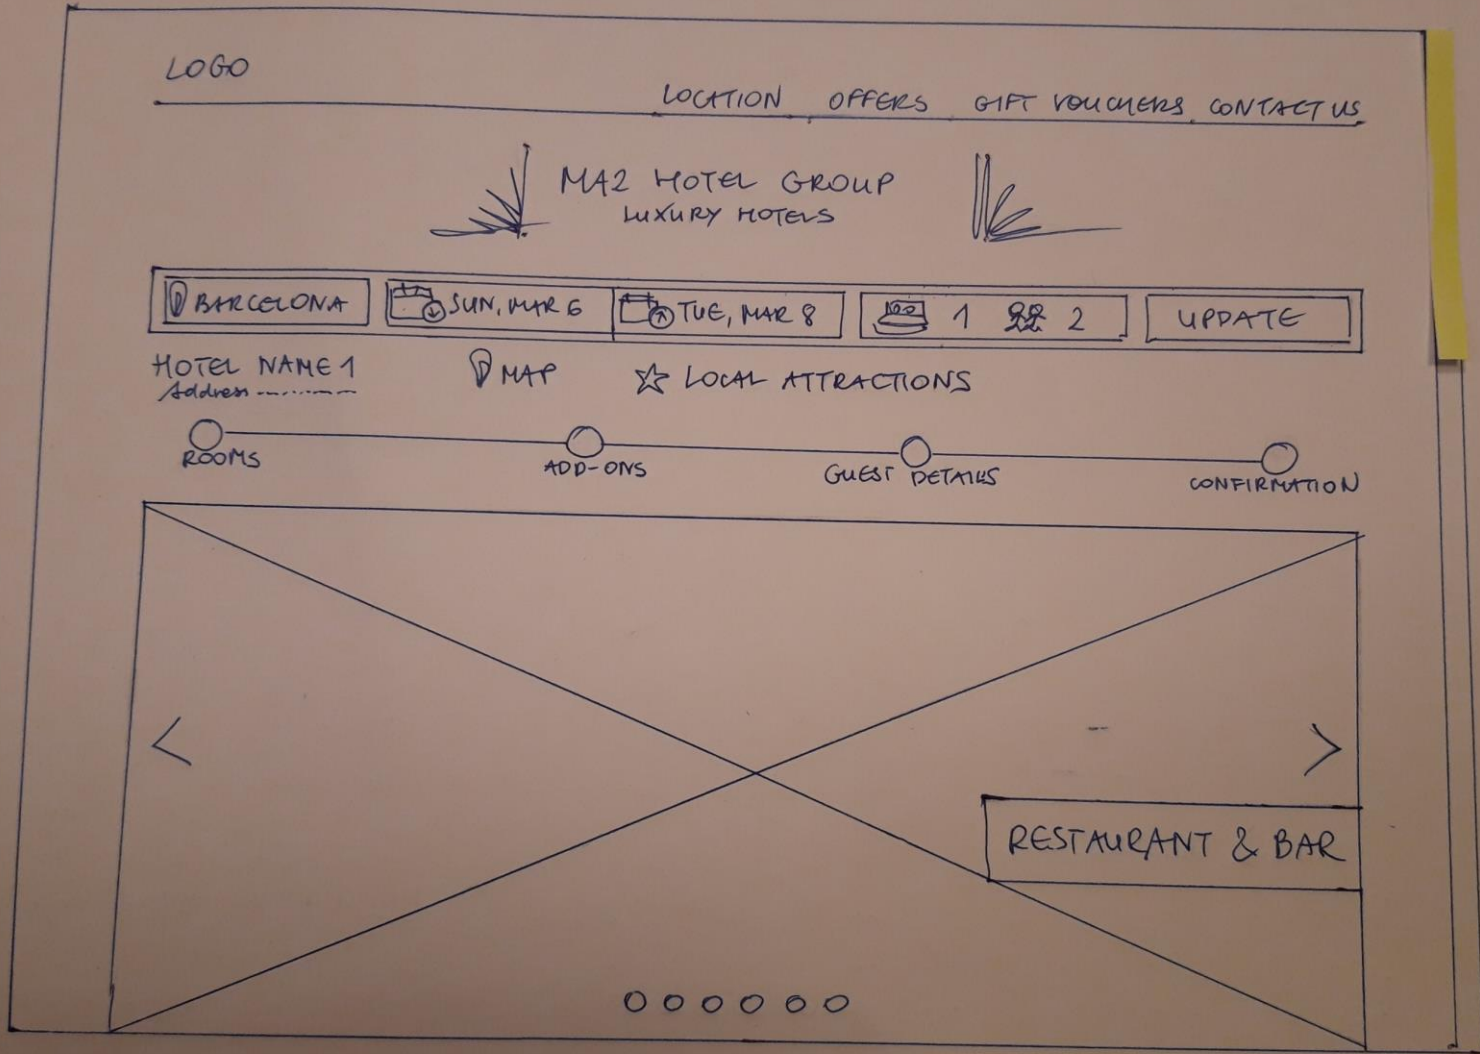 LOGO
LOCATION OFFERS GIFT VOUCHERS CONTACT US
MA2 HOTEL GROUP
LUXURY HOTELS
BARCELONA SUN, MAR 6 TUE, MAR 8 1 2 UPDATE
HOTEL NAME 1 MAP LOCAL ATTRACTIONS
Address ...........
ROOMS ADD-ONS GUEST DETAILS CONFIRMATION
< >
RESTAURANT & BAR